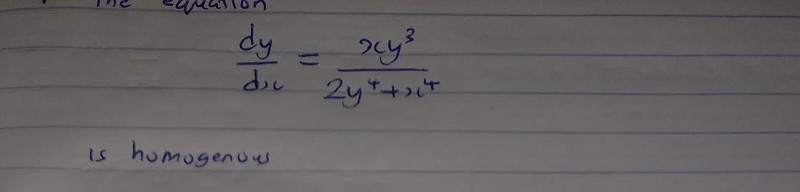 the equation
dy/dx = xy³/2y⁴+x⁴
is homogenous